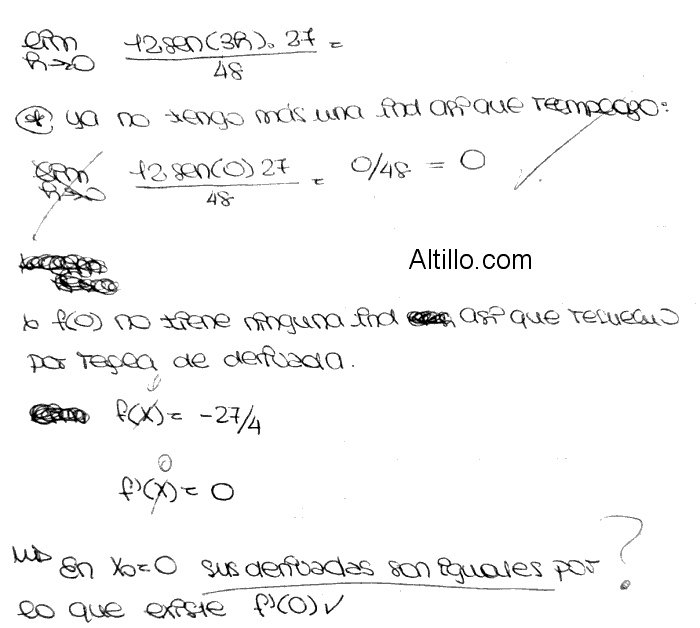 lim 12 sen(3h). 27 =
h→0 48
* ya no tengo más una ind así que reemplazo:
lim 12 sen(0) 27 = 0/48 = 0
h→0 48
Altillo.com
f(0) no tiene ninguna ind así que resuelvo
por regla de derivada.
f(x) = -27/4
0
f'(x) = 0
En X₀=0 sus derivadas son iguales por ?
lo que existe f'(0) ✓